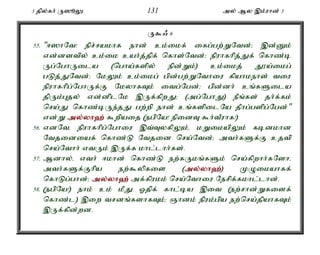 3 தில்கர் ருஸூலு 131 அல் ஆல இம்ரான் 3
ருகூஃ 6
55. "ஈஸாவே! நிச்சயமாக நான் உம்மைக் கைப்பற்றுவேன்; இன்னும்
என்னளவில் உம்மை உயர்த்திக் கொள்வேன்; நிராகரித்துக் கொண்டி
ருப்போருடைய (பொய்களில் நின்றும்) உம்மைத் தூய்மைப்
படுத்துவேன்; மேலும் உம்மைப் பின்பற்றுவோரை கியாமநாள் வரை
நிராகரிப்போருக்கு மேலாகவும் வைப்பேன்; பின்னர் உங்களுடைய
திரும்புதல் என்னிடமே இருக்கிறது; (அப்போது) நீங்கள் தர்க்கம்
செய்து கொண்டிருந்தது பற்றி நான் உங்களிடையே தீர்ப்பளிப்பேன்"
என்று அல்லாஹ் கூறியதை (நபியே! நினைவு கூர்வீராக!)
56. எனவே, நிராகரிப்போரை இவ்வுலகிலும், மறுமையிலும் கடினமான
வேதனையைக் கொண்டு வேதனை செய்வேன்; அவர்களுக்கு உதவி
செய்வோர் எவரும் இருக்க மாட்டார்கள்.
57. ஆனால், எவர் ஈமான் கொண்டு நற்கருமங்களும் செய்கிறார்களோ,
அவர்களுக்குரிய நற்கூலிகளை (அல்லாஹ்) முழுமையாகக்
கொடுப்பான்; அல்லாஹ் அக்கிரமம் செய்வோரை நேசிக்கமாட்டான்.
58. (நபியே!) நாம் உம் மீது ஓதிக் காட்டிய இவை (நற்சான்றுகளைக்
கொண்ட) இறை வசனங்களாகவும்; ஞானம் நிரம்பிய நற்செய்தியாகவும்
இருக்கின்றன.